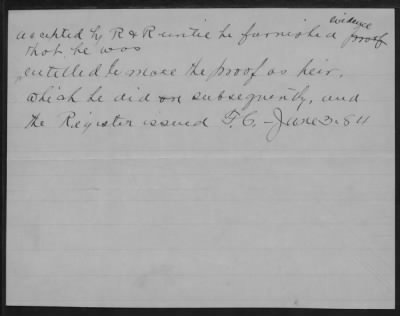 accepted by R & R untie he furnished evidence proof
that he was
entitled to make the proof as heir,
which he did on subsequently, and
the Register issued F.C. – June 3. 811